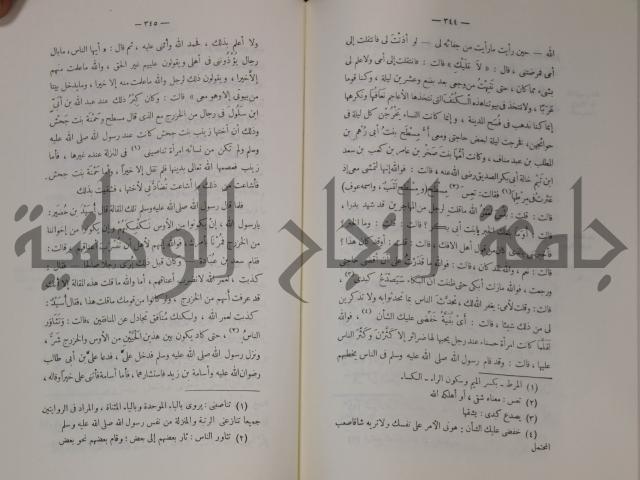 — ٣٤٤ —
الله — حين رأيت مارأيت من جفائه لى — لو أذنت لى فانتقلت إلى
أمى فمرضتنى، قال: « لا عليك » قالت: فانتقلت إلى أمى ولا علم لى
بشىء مما كان، حتى نقهت من وجعى بعد بضع وعشرين ليلة، وكنا قوما
عربا، ولا نتخذ فى بيوتنا هذه الكنف التى تتخذها الأعاجم نعافها ونكرهها
إنما كنا نذهب فى فسح المدينة، وإنما كانت النساء يخرجن كل ليلة فى
حوائجهن، فخرجت ليلة لبعض حاجتى ومعى أم مسطح بنت أبى رهم بن
المطلب بن عبد مناف، وكانت أمها بنت صخر بن عامر بن كعب بن سعد
ابن تيم خالة أبى بكر الصديق رضى الله عنه، قالت: فوالله إنها لتمشى معى إذ
عثرت فى مرطها (١) فقالت: تعس (٢) مسطح
قالت: قلت: بئس لعمر الله ماقلت لرجل من المهاجرين قد شهد بدرا،
قالت: نعم، والله لقد كان، قالت: فوالله ما قدرت على أن أقضى حاجتى
ورجعت، فوالله مازلت أبكى حتى ظننت أن البكاء سيصدع كبدى (٣)،
قالت: وقلت لأمى: يغفر الله لك، تحدث الناس بما تحدثوا به ولا تذكرين
لى من ذلك شيئا، قالت: أى بنية خفضى عليك الشأن (٤)، فوالله
لقلما كانت امرأة حسناء عند رجل يحبها لها ضرائر إلا كثرن وكثر الناس
عليها، قالت: وقد قام رسول الله صلى الله عليه وسلم فى الناس يخطبهم
(١) المرط ـ بكسر الميم وسكون الراء ـ الكساء.
(٢) تعس: معناه شقى، أو أهلكه الله
(٣) يصدع كبدى: يشقها
(٤) خفضى عليك الشأن: هونى الأمر على نفسك ولا تريه شاقا صعب
المحتمل
— ٣٤٥ —
ولا أعلم بذلك، فحمد الله وأثنى عليه، ثم قال: « أيها الناس، مابال
رجال يؤذوننى فى أهلى ويقولون عليهم غير الحق، والله ماعلمت منهم
إلا خيرا، ويقولون ذلك لرجل والله ماعلمت منه إلا خيرا، وما يدخل بيتا
من بيوتى إلا وهو معى » قالت: وكان كبر ذلك عند عبد الله بن أبى
ابن سلول فى رجال من الخزرج مع الذى قال مسطح وحمنة بنت جحش
وذلك أن أختها زينب بنت جحش كانت عند رسول الله صلى الله عليه
وسلم ولم تكن من نسائه امرأة تناصينى (١) فى المنزلة عنده غيرها، فأما
زينب فعصمها الله تعالى بدينها فلم تقل إلا خيرا، وأما حمنة بنت جحش
فأشاعت من ذلك ما أشاعت تضادنى لأختها، فشقيت بذلك
فلما قال رسول الله صلى الله عليه وسلم تلك المقالة قال أسيد بن حضير:
يارسول الله، إن يكونوا من الأوس نكفكهم، وإن يكونوا من إخواننا
من الخزرج فمرنا بأمرك، فوالله إنهم لأهل أن تضرب أعناقهم، قالت:
فقام سعد بن عبادة، وكان قبل ذلك يرى رجلا صالحا، فقال:
كذبت، لعمر الله لا تضرب أعناقهم، أما والله ما قلت هذه المقالة إلا أنك
قد عرفت أنهم من الخزرج، ولو كانوا من قومك ماقلت هذا، فقال أسيد:
كذبت لعمر الله، ولكنك منافق تجادل عن المنافقين، قالت: وتثاور
الناس (٢)، حتى كاد يكون بين هذين الحيين من الأوس والخزرج شر،
ونزل رسول الله صلى الله عليه وسلم فدخل على، فدعا على بن أبى طالب
رضوان الله عليه وأسامة بن زيد فاستشارهما، فأما أسامة فأثنى على خيرا وقاله،
(١) تناصينى: يروى بالباء الموحدة وبالياء المثناة، والمراد فى الروايتين
جميعا تنازعنى الرتبة والمنزلة من نفس رسول الله صلى الله عليه وسلم
(٢) تثاور الناس: ثار بعضهم إلى بعض؛ وقام بعضهم نحو بعض
جامعة النجاح الوطنية